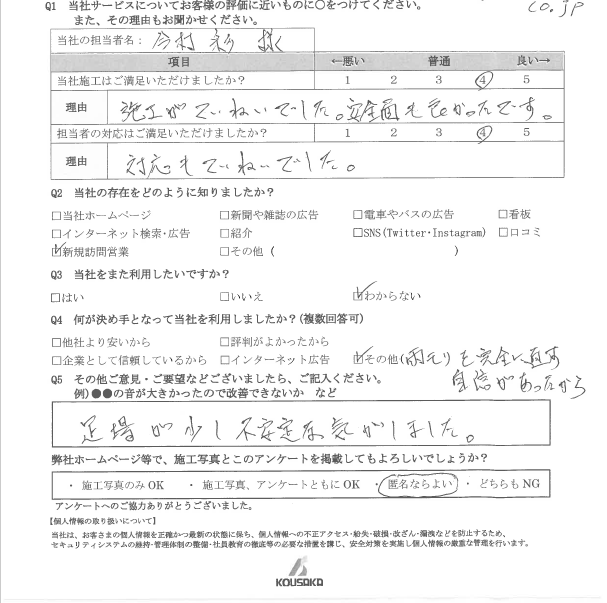 co.jp
Q1 当社サービスについてお客様の評価に近いものに○をつけてください。
また、その理由もお聞かせください。
当社の担当者名: 今村 様
項目 ←悪い 普通 良い→
当社施工はご満足いただけましたか? 1 2 3 4 5
理由 施工がていねいでした。安全面も良かったです。
担当者の対応はご満足いただけましたか? 1 2 3 4 5
理由 対応もていねいでした。
Q2 当社の存在をどのように知りましたか?
□当社ホームページ □新聞や雑誌の広告 □電車やバスの広告 □看板
□インターネット検索・広告 □紹介 □SNS(Twitter・Instagram) □口コミ
☑新規訪問営業 □その他 ( )
Q3 当社をまた利用したいですか?
□はい □いいえ ☑わからない
Q4 何が決め手となって当社を利用しましたか?(複数回答可)
□他社より安いから □評判がよかったから
□企業として信頼しているから □インターネット広告 ☑その他(雨もりを完全に直す
自信があったから
Q5 その他ご意見・ご要望などございましたら、ご記入ください。
例)●●の音が大きかったので改善できないか など
足場が少し不安定な気がしました。
弊社ホームページ等で、施工写真とこのアンケートを掲載してもよろしいでしょうか?
・ 施工写真のみ OK ・ 施工写真、アンケートともに OK ・ 匿名ならよい ・ どちらも NG
アンケートへのご協力ありがとうございました。
【個人情報の取り扱いについて】
当社は、お客さまの個人情報を正確かつ最新の状態に保ち、個人情報への不正アクセス・紛失・破損・改ざん・漏洩などを防止するため、
セキュリティシステムの維持・管理体制の整備・社員教育の徹底等の必要な措置を講じ、安全対策を実施し個人情報の厳重な管理を行います。
KOUSAKA